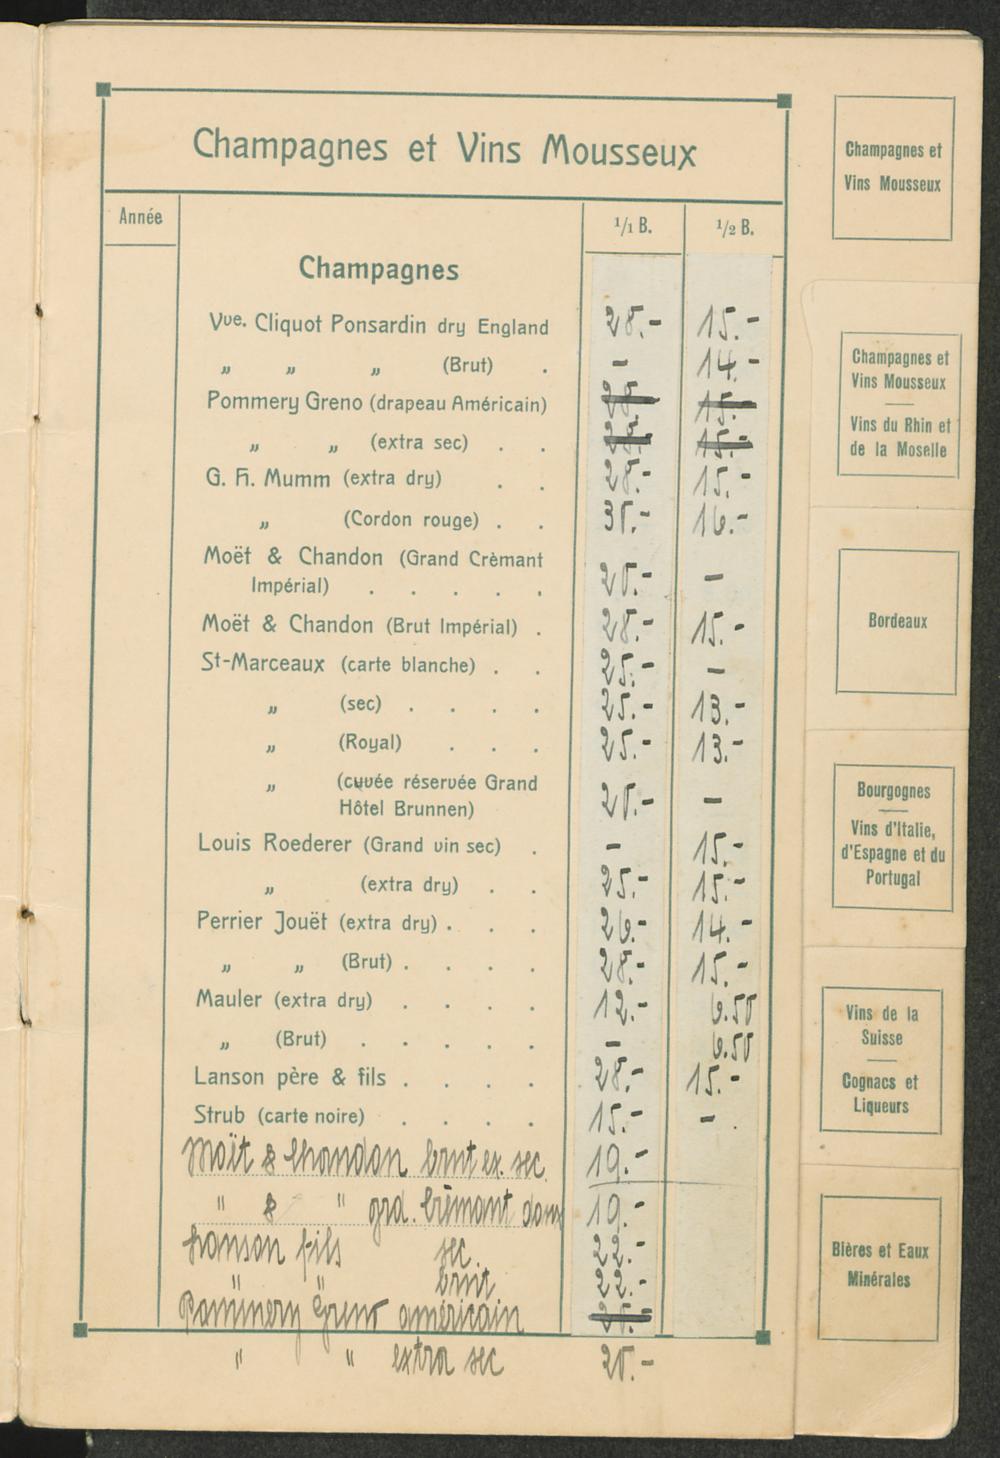 Champagnes et Vins Mousseux
Année 1/1 B. 1/2 B.
Champagnes
Vue. Cliquot Ponsardin dry England 28.- 15.-
„ „ „ (Brut) . - 14.-
Pommery Greno (drapeau Américain) 28.- 15.-
„ „ (extra sec) . . 28.- 15.-
G. H. Mumm (extra dry) . . 28.- 15.-
„ (Cordon rouge) . . 16.-
Moët & Chandon (Grand Crèmant
Impérial) . . . . . 25.- -
Moët & Chandon (Brut Impérial) . 28.- 15.-
St-Marceaux (carte blanche) . . 25.- -
„ (sec) . . . . 25.- 13.-
„ (Royal) . . . 25.- 13.-
„ (cuvée réservée Grand
Hôtel Brunnen) 25.- -
Louis Roederer (Grand vin sec) . - 15.-
„ (extra dry) . . 25.- 15.-
Perrier Jouët (extra dry) . . . 26.- 14.-
„ „ (Brut) . . . . 28.- 15.-
Mauler (extra dry) . . . . 12.- 6.50
„ (Brut) . . . . . - 6.50
Lanson père & fils . . . . 28.- 15.-
Strub (carte noire) . . . . 15.- - .
Moët & Chandon brut ex. sec. 19.-
" & " grd. Crêmant 19.-
Lanson fils sec. 22.-
" " brut 22.-
Pommery Greno américain
" " extra sec 25.-
Champagnes et
Vins Mousseux
Champagnes et
Vins Mousseux
Vins du Rhin et
de la Moselle
Bordeaux
Bourgognes
Vins d'Italie,
d'Espagne et du
Portugal
Vins de la
Suisse
Cognacs et
Liqueurs
Bières et Eaux
Minérales